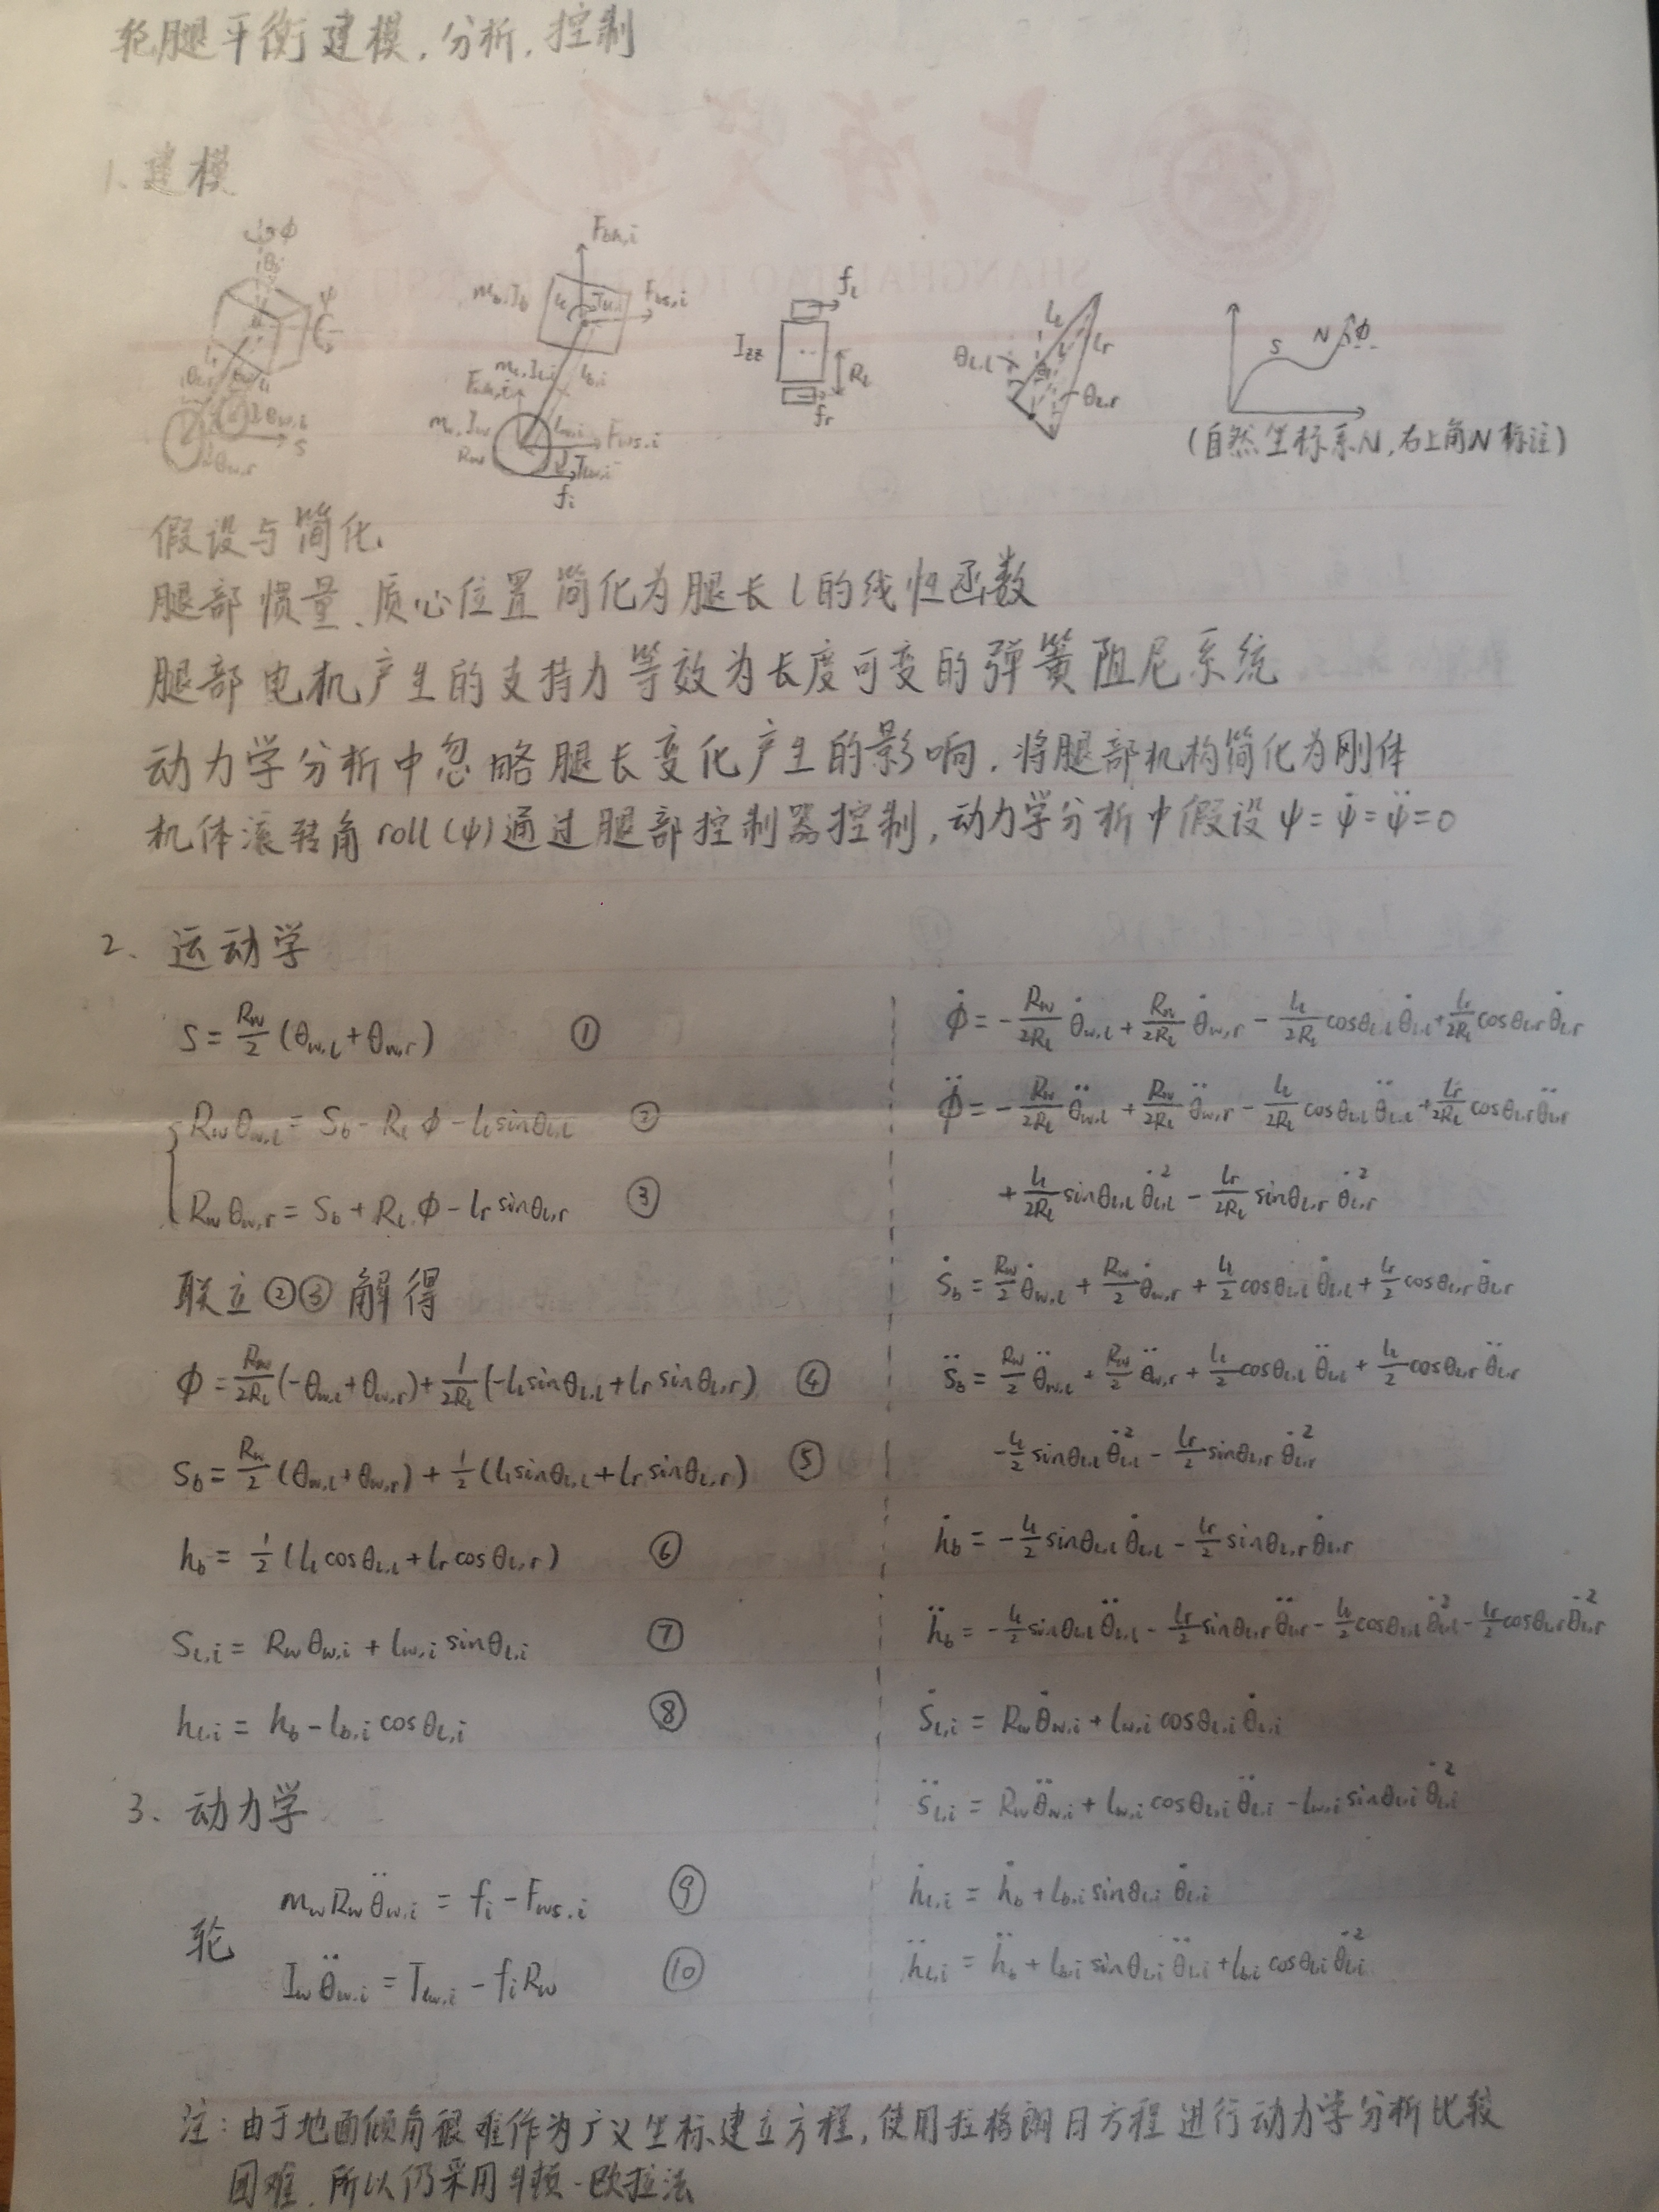 轮腿平衡建模,分析,控制
1. 建模
φ
ψ
θw,l
θw,r
s
Fbh,i
mb, Ib
Fbs,i
Fws,i
Rw
fi
Izz
fl
Rl
fr
ll
lr
θl,l
θl,r
s
N
φ
(自然坐标系N,右上角N标注)
假设与简化
腿部惯量、质心位置简化为腿长l的线性函数
腿部电机产生的支持力等效为长度可变的弹簧阻尼系统
动力学分析中忽略腿长变化产生的影响,将腿部机构简化为刚体
机体滚转角roll(ψ)通过腿部控制器控制,动力学分析中假设ψ=ψ̇=ψ̈=0
2、运动学
s = Rw/2 (θw,l + θw,r) ①
Rwθw,l = sb - Rlφ - ll sinθl,l ②
Rwθw,r = sb + Rlφ - lr sinθl,r ③
联立②③解得
φ = Rw/2Rl (-θw,l + θw,r) + 1/2Rl (-ll sinθl,l + lr sinθl,r) ④
sb = Rw/2 (θw,l + θw,r) + 1/2 (ll sinθl,l + lr sinθl,r) ⑤
hb = 1/2 (ll cosθl,l + lr cosθl,r) ⑥
sl,i = Rwθw,i + lw,i sinθl,i ⑦
hl,i = hb - lb,i cosθl,i ⑧
φ̇ = -Rw/2Rl θ̇w,l + Rw/2Rl θ̇w,r - ll/2Rl cosθl,l θ̇l,l + lr/2Rl cosθl,r θ̇l,r
φ̈ = -Rw/2Rl θ̈w,l + Rw/2Rl θ̈w,r - ll/2Rl cosθl,l θ̈l,l + lr/2Rl cosθl,r θ̈l,r
+ ll/2Rl sinθl,l θ̇l,l² - lr/2Rl sinθl,r θ̇l,r²
ṡb = Rw/2 θ̇w,l + Rw/2 θ̇w,r + ll/2 cosθl,l θ̇l,l + lr/2 cosθl,r θ̇l,r
s̈b = Rw/2 θ̈w,l + Rw/2 θ̈w,r + ll/2 cosθl,l θ̈l,l + lr/2 cosθl,r θ̈l,r
- ll/2 sinθl,l θ̇l,l² - lr/2 sinθl,r θ̇l,r²
ḣb = -ll/2 sinθl,l θ̇l,l - lr/2 sinθl,r θ̇l,r
ḧb = -ll/2 sinθl,l θ̈l,l - lr/2 sinθl,r θ̈l,r - ll/2 cosθl,l θ̇l,l² - lr/2 cosθl,r θ̇l,r²
ṡl,i = Rwθ̇w,i + lw,i cosθl,i θ̇l,i
s̈l,i = Rwθ̈w,i + lw,i cosθl,i θ̈l,i - lw,i sinθl,i θ̇l,i²
ḣl,i = ḣb + lb,i sinθl,i θ̇l,i
ḧl,i = ḧb + lb,i sinθl,i θ̈l,i + lb,i cosθl,i θ̇l,i²
3、动力学
轮
mwRwθ̈w,i = fi - Fws,i ⑨
Iwθ̈w,i = Tlw,i - fiRw ⑩
注:由于地面倾角很难作为广义坐标建立方程,使用拉格朗日方程进行动力学分析比较
困难,所以仍采用牛顿-欧拉法